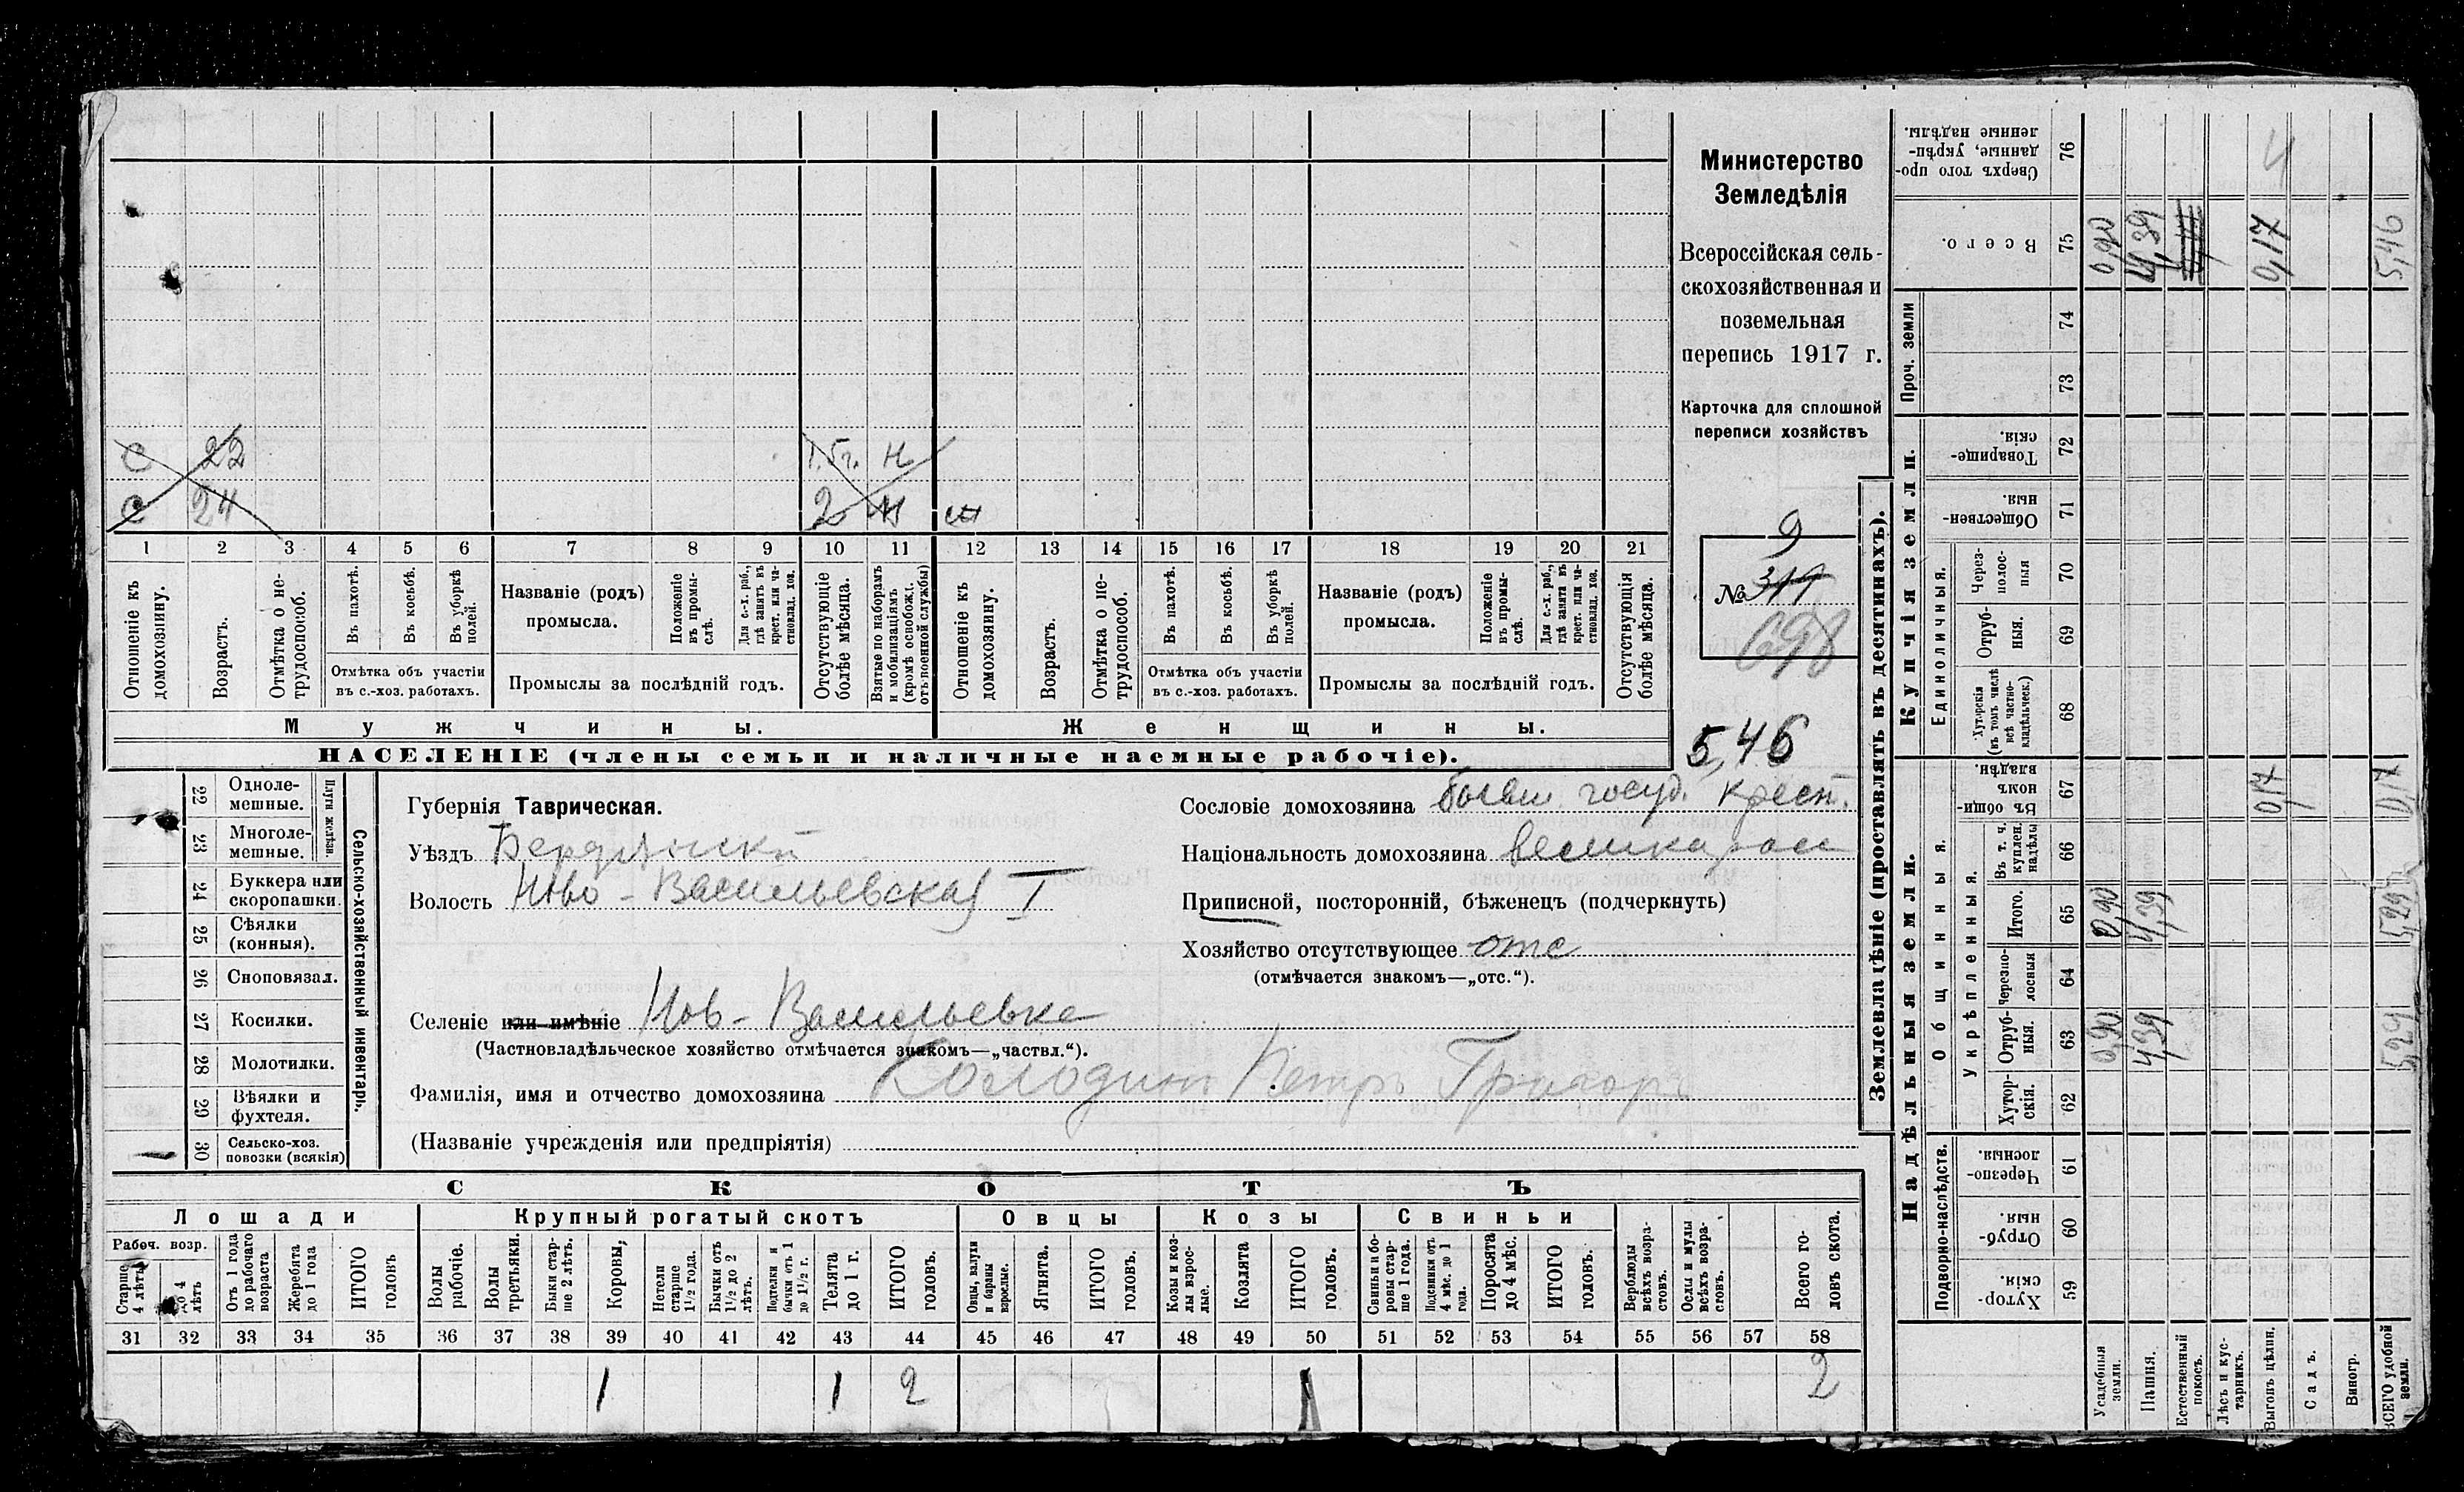 С 22 1.5 г. Н
С 24 2 Н
1 2 3 4 5 6 7 8 9 10 11 12 13 14 15 16 17 18 19 20 21
Отношеніе къ домохозяину.
Возрастъ.
Отмѣтка о не-
трудоспособ.
Въ пахотѣ.
Въ косьбѣ.
Въ уборкѣ
полей.
Отмѣтка объ участіи
въ с.-хоз. работахъ.
Названіе (родъ)
промысла.
Положеніе
въ промы-
слѣ.
Для с.-х. раб.,
гдѣ занятъ въ
крест. или ча-
стновлад. хоз.
Промыслы за послѣдній годъ.
Отсутствующіе
болѣе мѣсяца.
Взятые по наборамъ
и мобилизаціямъ
(кромѣ освобожд.
отъ военной службы)
Отношеніе къ
домохозяину.
Возрастъ.
Отмѣтка о не-
трудоспособ.
Въ пахотѣ.
Въ косьбѣ.
Въ уборкѣ
полей.
Отмѣтка объ участіи
въ с.-хоз. работахъ.
Названіе (родъ)
промысла.
Положеніе
въ промы-
слѣ.
Для с.-х. раб.,
гдѣ заняти въ
крест. или ча-
стновлад. хоз.
Промыслы за послѣдній годъ.
Отсутствующія
болѣе мѣсяца.
Мужчины.
Женщины.
НАСЕЛЕНІЕ (члены семьи и наличные наемные рабочіе).
Министерство
Земледѣлія
Всероссійская сель-
скохозяйственная и
поземельная
перепись 1917 г.
Карточка для сплошной
переписи хозяйствъ
9
№
698
5,46
22 Одноле-
мешные.
23 Многоле-
мешные.
Плуги желѣзн.
24 Буккера или
скоропашки.
25 Сѣялки
(конныя).
26 Сноповязал.
27 Косилки.
28 Молотилки.
29 Вѣялки и
фухтеля.
30 Сельско-хоз.
повозки (всякія)
Сельско-хозяйственный инвентарь.
Губернія Таврическая.
Уѣздъ Бердянскій
Волость Ново-Васильевская I
Селеніе или имѣніе Нов-Васильевка
(Частновладѣльческое хозяйство отмѣчается знакомъ—„частвл.“).
Фамилія, имя и отчество домохозяина Колодин Петръ Григор
(Названіе учрежденія или предпріятія)
Сословіе домохозяина бывш. госуд. крест.
Національность домохозяина великоросс
Приписной, посторонній, бѣженецъ (подчеркнуть)
Хозяйство отсутствующее отс
(отмѣчается знакомъ—„отс.“).
СКОТЪ
Лошади
Крупный рогатый скотъ
Овцы
Козы
Свиньи
Рабоч. возр.
Старше
4 лѣтъ
до 4
лѣтъ
Отъ 1 года
до рабочаго
возраста
Жеребята
до 1 года
ИТОГО
головъ
Волы
рабочіе.
Волы
третьяки.
Быки стар-
ше 2 лѣтъ.
Коровы,
Нетели
старше
1½ года.
Бычки отъ
1½ до 2
лѣтъ.
Подтелки и
бычки отъ 1
до 1½ г.
Телята
до 1 г.
ИТОГО
головъ.
Овцы, валухи
и бараны
взрослые.
Ягнята.
ИТОГО
головъ.
Козы и коз-
лы взрос-
лые.
Козлята
ИТОГО
головъ.
Свиньи и бо-
ровы стар-
ше 1 года.
Подсвинки отъ
4 мѣс. до 1
года.
Поросята
до 4 мѣс.
ИТОГО
головъ.
Верблюды
всѣхъ возра-
стовъ.
Ослы и мулы
всѣхъ возра-
стовъ.
Всего го-
ловъ скота.
31 32 33 34 35 36 37 38 39 40 41 42 43 44 45 46 47 48 49 50 51 52 53 54 55 56 57 58
1 1 2 1 2
Землевладѣніе (проставлять въ десятинахъ).
Надѣльныя земли.
Купчія земли.
Проч. земли
Подворно-наслѣдств.
Общинныя.
Укрѣпленныя.
Единоличныя.
76 Сверхъ того про-
данные, укрѣп-
ленные надѣлы.
4
75 Всего.
0,90 4,39 0,17 5,46
74
73
72 Товарище-
скія.
71 Обществен-
ныя.
70 Через-
полос-
ныя
69 Отруб-
ныя.
68 Хуторскія
(въ томъ числѣ
всѣ частно-
владѣльческ.)
67 Въ общи-
номъ
владѣн.
0,17 0,17
66 Въ т. ч.
куплен.
надѣлы
65 Итого.
0,90 4,39 5,29
64 Черезпо-
лосныя
63 Отруб-
ныя.
0,90 4,39 5,29
62 Хутор-
скія.
61 Черезпо-
лосныя.
60 Отруб-
ныя.
59 Хутор-
скія.
Усадебныя
земли.
Пашня.
Естественный
покосъ.
Лѣсъ и кус-
тарникъ.
Выгонъ цѣлин.
Садъ.
Виногр.
ВСЕГО удобной
земли.